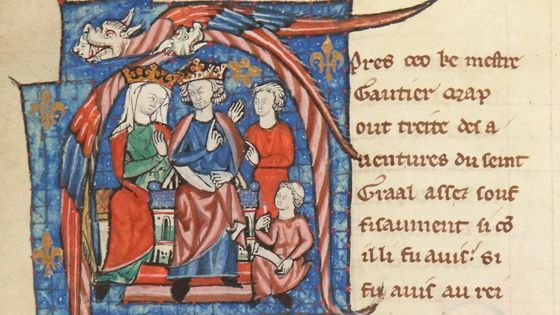 Apres ceo ke mestre
Gautier Map
out treite des a
uentures du seint
Graal assez souf
fisaument si cō
il li fu auis. Si
fu auis au rei